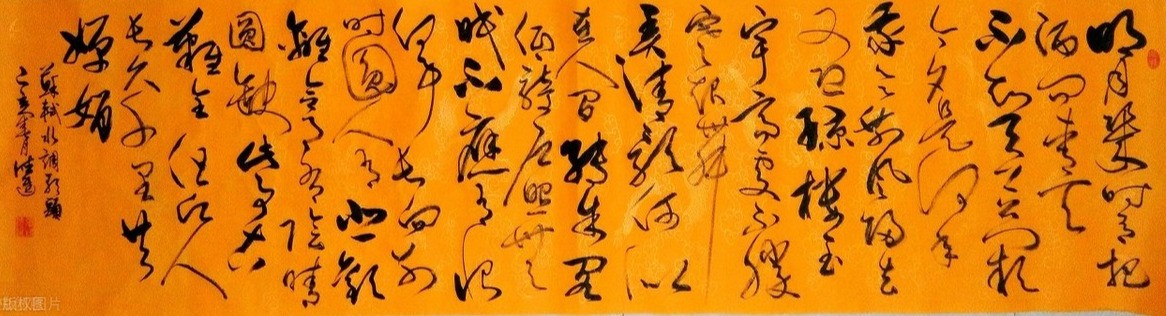 明月幾时有把
酒问青天
不知天上宫阙
今夕是何年
我欲乘风归去
又恐瓊楼玉
宇高处不勝
寒起舞
弄清影何似
在人间转朱阁
低綺户照無
眠不應有恨
何事长向别
时圆人有悲歡
離合月有阴晴
圆缺此事古
難全但願人
长久千里共
嬋娟
蘇軾水調歌頭
版权图片